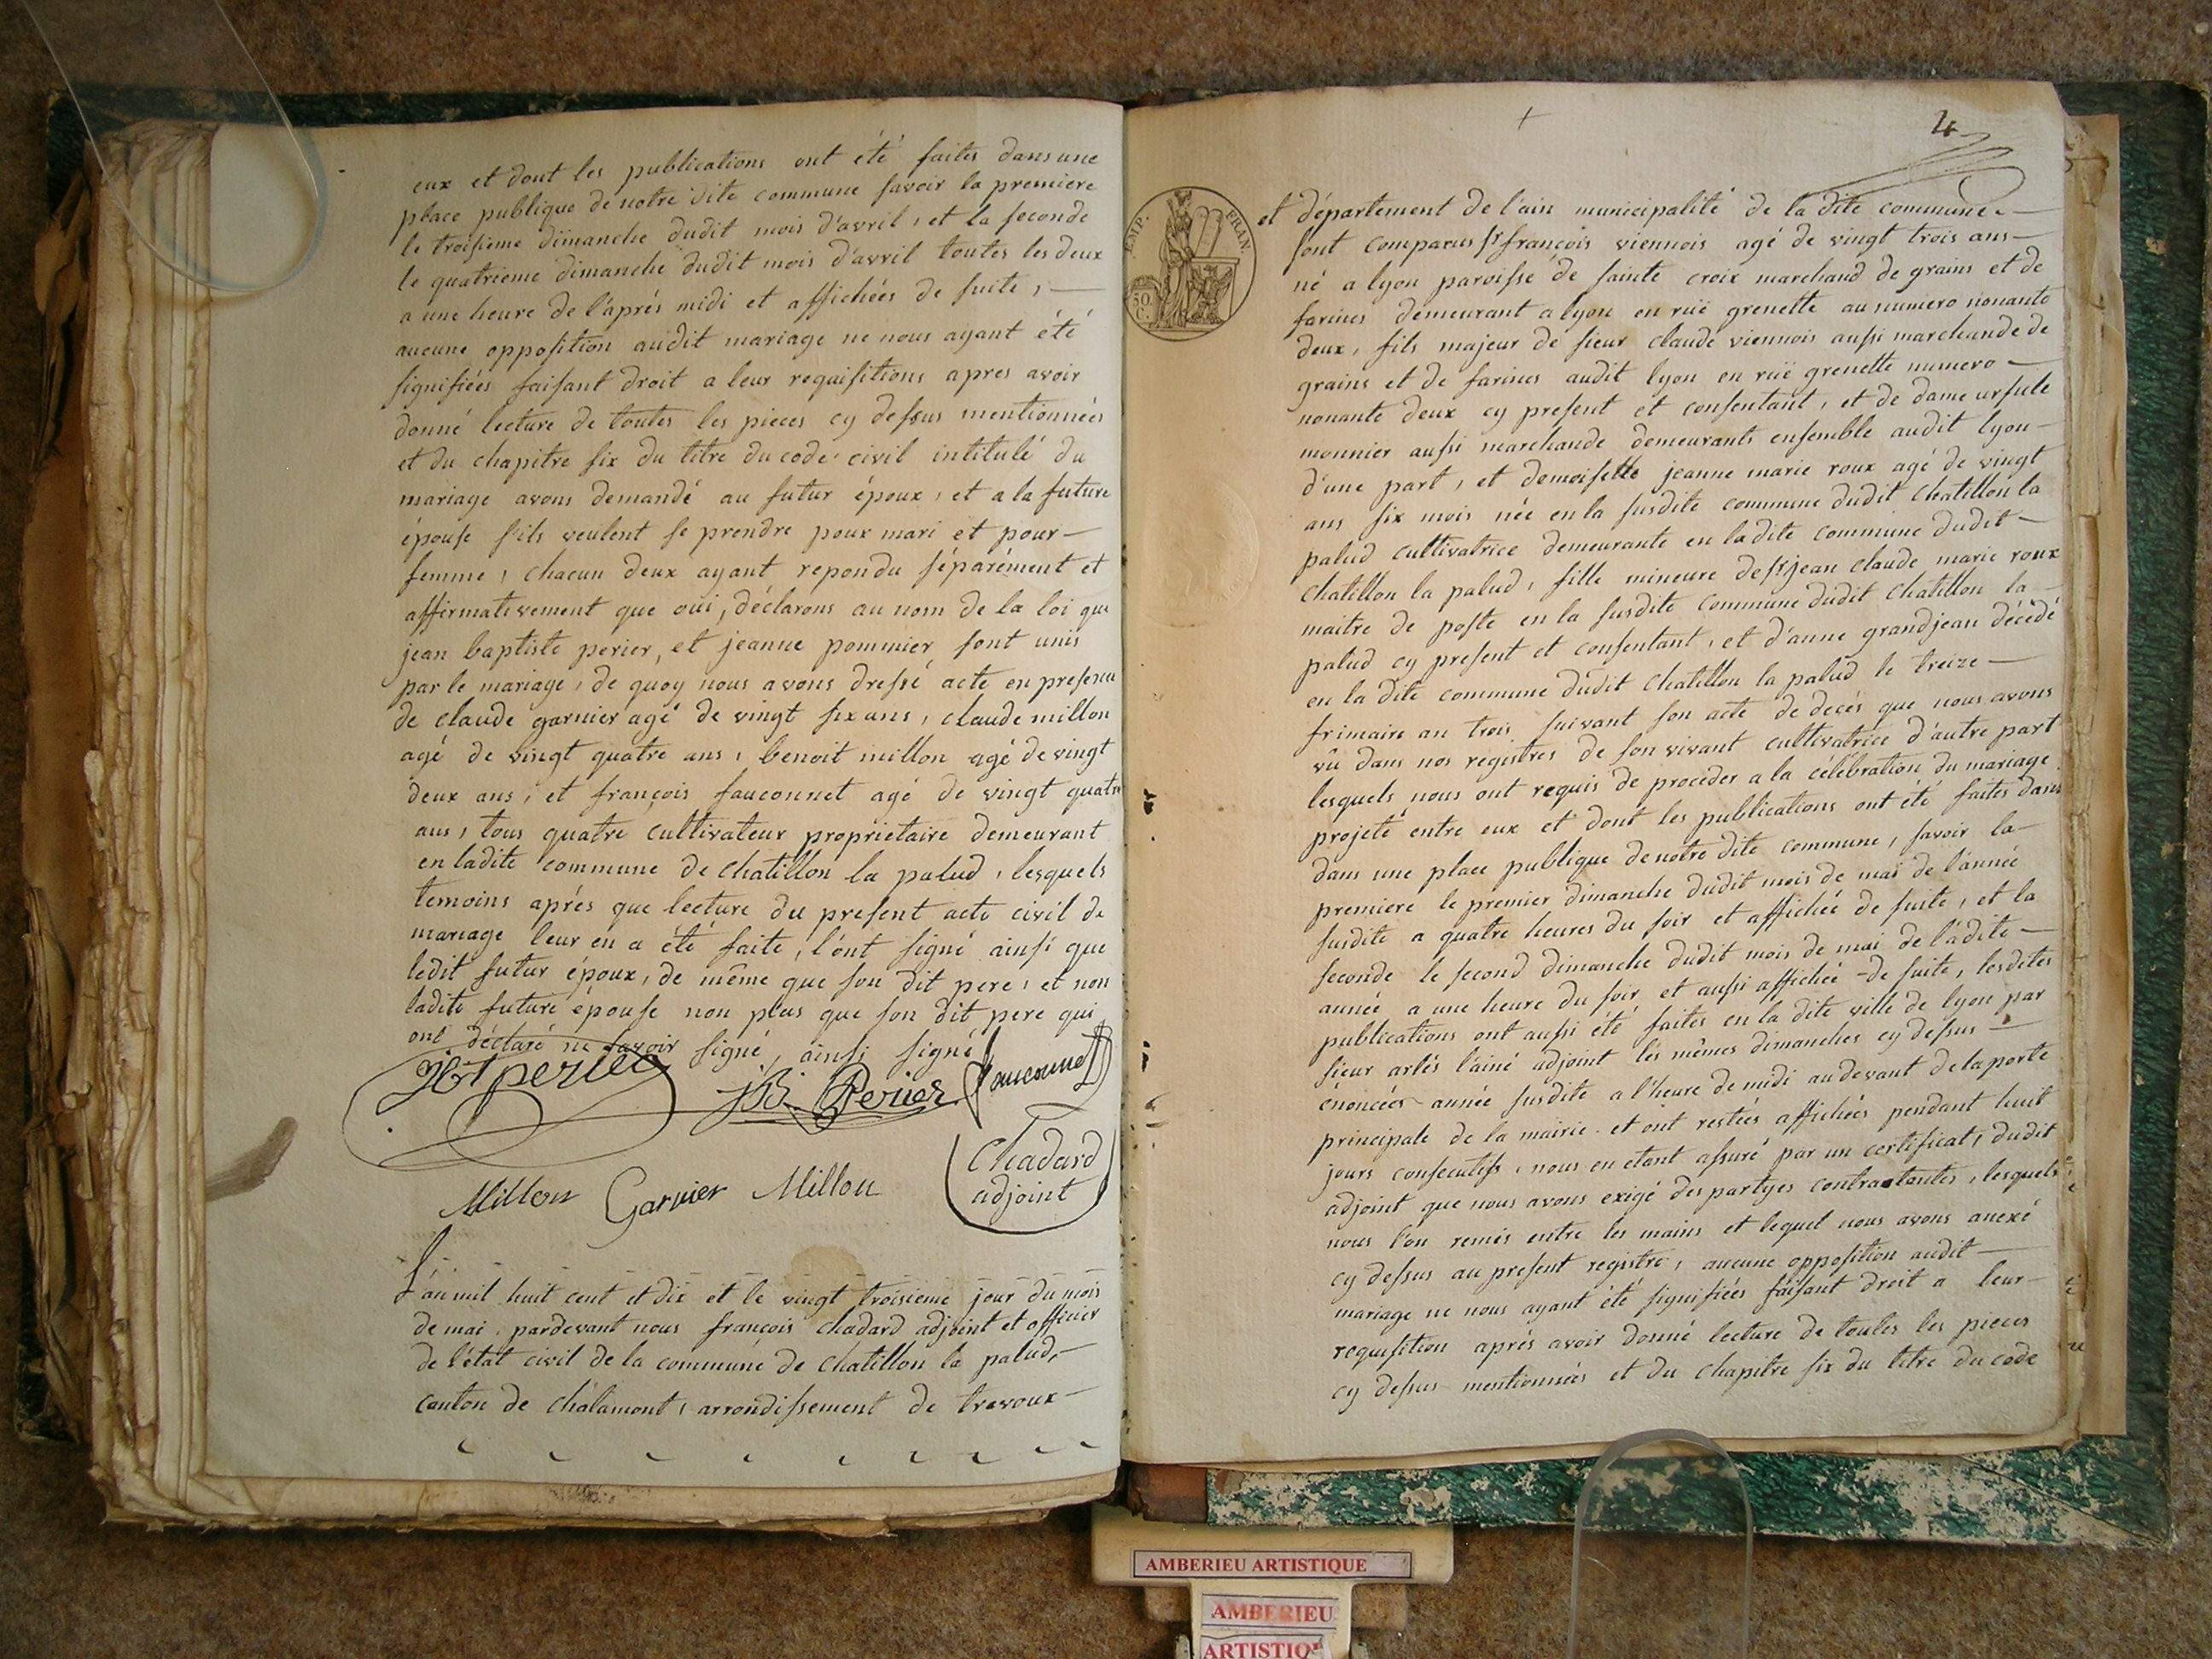 eux et dont les publications ont été faites dans une
place publique de notre dite commune savoir la premiere
le troisieme dimanche dudit mois d'avril, et la seconde
le quatrieme dimanche dudit mois d'avril toutes les deux
a une heure de l'aprés midi et affichées de suite, —
aucune opposition audit mariage ne nous ayant été
signifiées faisant droit a leur requisitions apres avoir
donné lecture de toutes les pieces cy dessus mentionnées
et du chapitre six du titre du code civil intitulé du
mariage avons demandé au futur époux, et a la future
épouse s'ils veulent se prendre pour mari et pour —
femme, chacun deux ayant repondu séparément et
affirmativement que oui, déclarons au nom de la loi que
jean baptiste perier, et jeanne pommier sont unis
par le mariage, de quoy nous avons dressé acte en presence
de claude garnier agé de vingt six ans, claude millon
agé de vingt quatre ans, benoit millon agé de vingt
deux ans, et françois fauconnet agé de vingt quatre
ans, tous quatre cultivateur proprietaire demeurant
en ladite commune de chatillon la palud, lesquels
temoins aprés que lecture du present acte civil de
mariage leur en a été faite, l'ont signé ainsi que
ledit futur époux, de même que son dit pere, et non
ladite future épouse non plus que son dit pere qui
ont déclaré ne savoir signé, ainsi signé
perier jB. Perier fauconnet
Millon Garnier Millon Chadard
adjoint
L'an mil huit cent et dix et le vingt troisieme jour du mois
de mai, pardevant nous françois chadard adjoint et officier
de l'état civil de la commune de chatillon la palud, —
canton de chalamont, arrondissement de trevoux —
4
EMP. FRAN
50.
C.
et département de l'ain municipalité de la dite commune. —
sont comparus sr françois viennois agé de vingt trois ans —
né a lyon paroisse de sainte croix marchand de grains et de
farines demeurant a lyon en rüe grenette au numero nonante
deux, fils majeur de sieur claude viennois aussi marchande de
grains et de farines audit lyon en rüe grenette numero —
nonante deux cy present et consentant, et de dame ursule
monnier aussi marchande demeurants ensemble audit lyon —
d'une part, et demoiselle jeanne marie roux agé de vingt
ans six mois née en la susdite commune dudit chatillon la
palud cultivatrice demeurante en ladite commune dudit —
chatillon la palud, fille mineure de sr jean claude marie roux
maitre de poste en la susdite commune dudit chatillon la —
palud cy present et consentant, et d'anne grandjean décédé
en la dite commune dudit chatillon la palud le treize —
frimaire an trois suivant son acte de decés que nous avons
vû dans nos registres de son vivant cultivatrice d'autre part
lesquels nous ont requis de procéder a la célébration du mariage
projeté entre eux et dont les publications ont été faites dans
dans une place publique de notre dite commune, savoir la —
premiere le premier dimanche dudit mois de mai de l'année
susdite a quatre heures du soir et affichée de suite, et la
seconde le second dimanche dudit mois de mai de l'adite —
année a une heure du soir et aussi affichée de suite, lesdites
publications ont aussi été faites en la dite ville de lyon par
sieur arlés l'ainé adjoint les mêmes dimanches cy dessus —
énoncées année susdite a l'heure de midi audevant de la porte
principale de la mairie et ont restées affichées pendant huit
jours consecutifs, nous en etant assuré par un certificat, dudit
adjoint que nous avons exigé des partyes contractantes, lesquels
nous l'on remis entre les mains et lequel nous avons anexé
cy dessus au present registre, aucune opposition audit —
mariage ne nous ayant été signifiées faisant droit a leur —
requisition aprés avoir donné lecture de toutes les pieces
cy dessus mentionnées et du chapitre six du titre du code
AMBERIEU ARTISTIQUE
AMBERIEU
ARTISTIQU